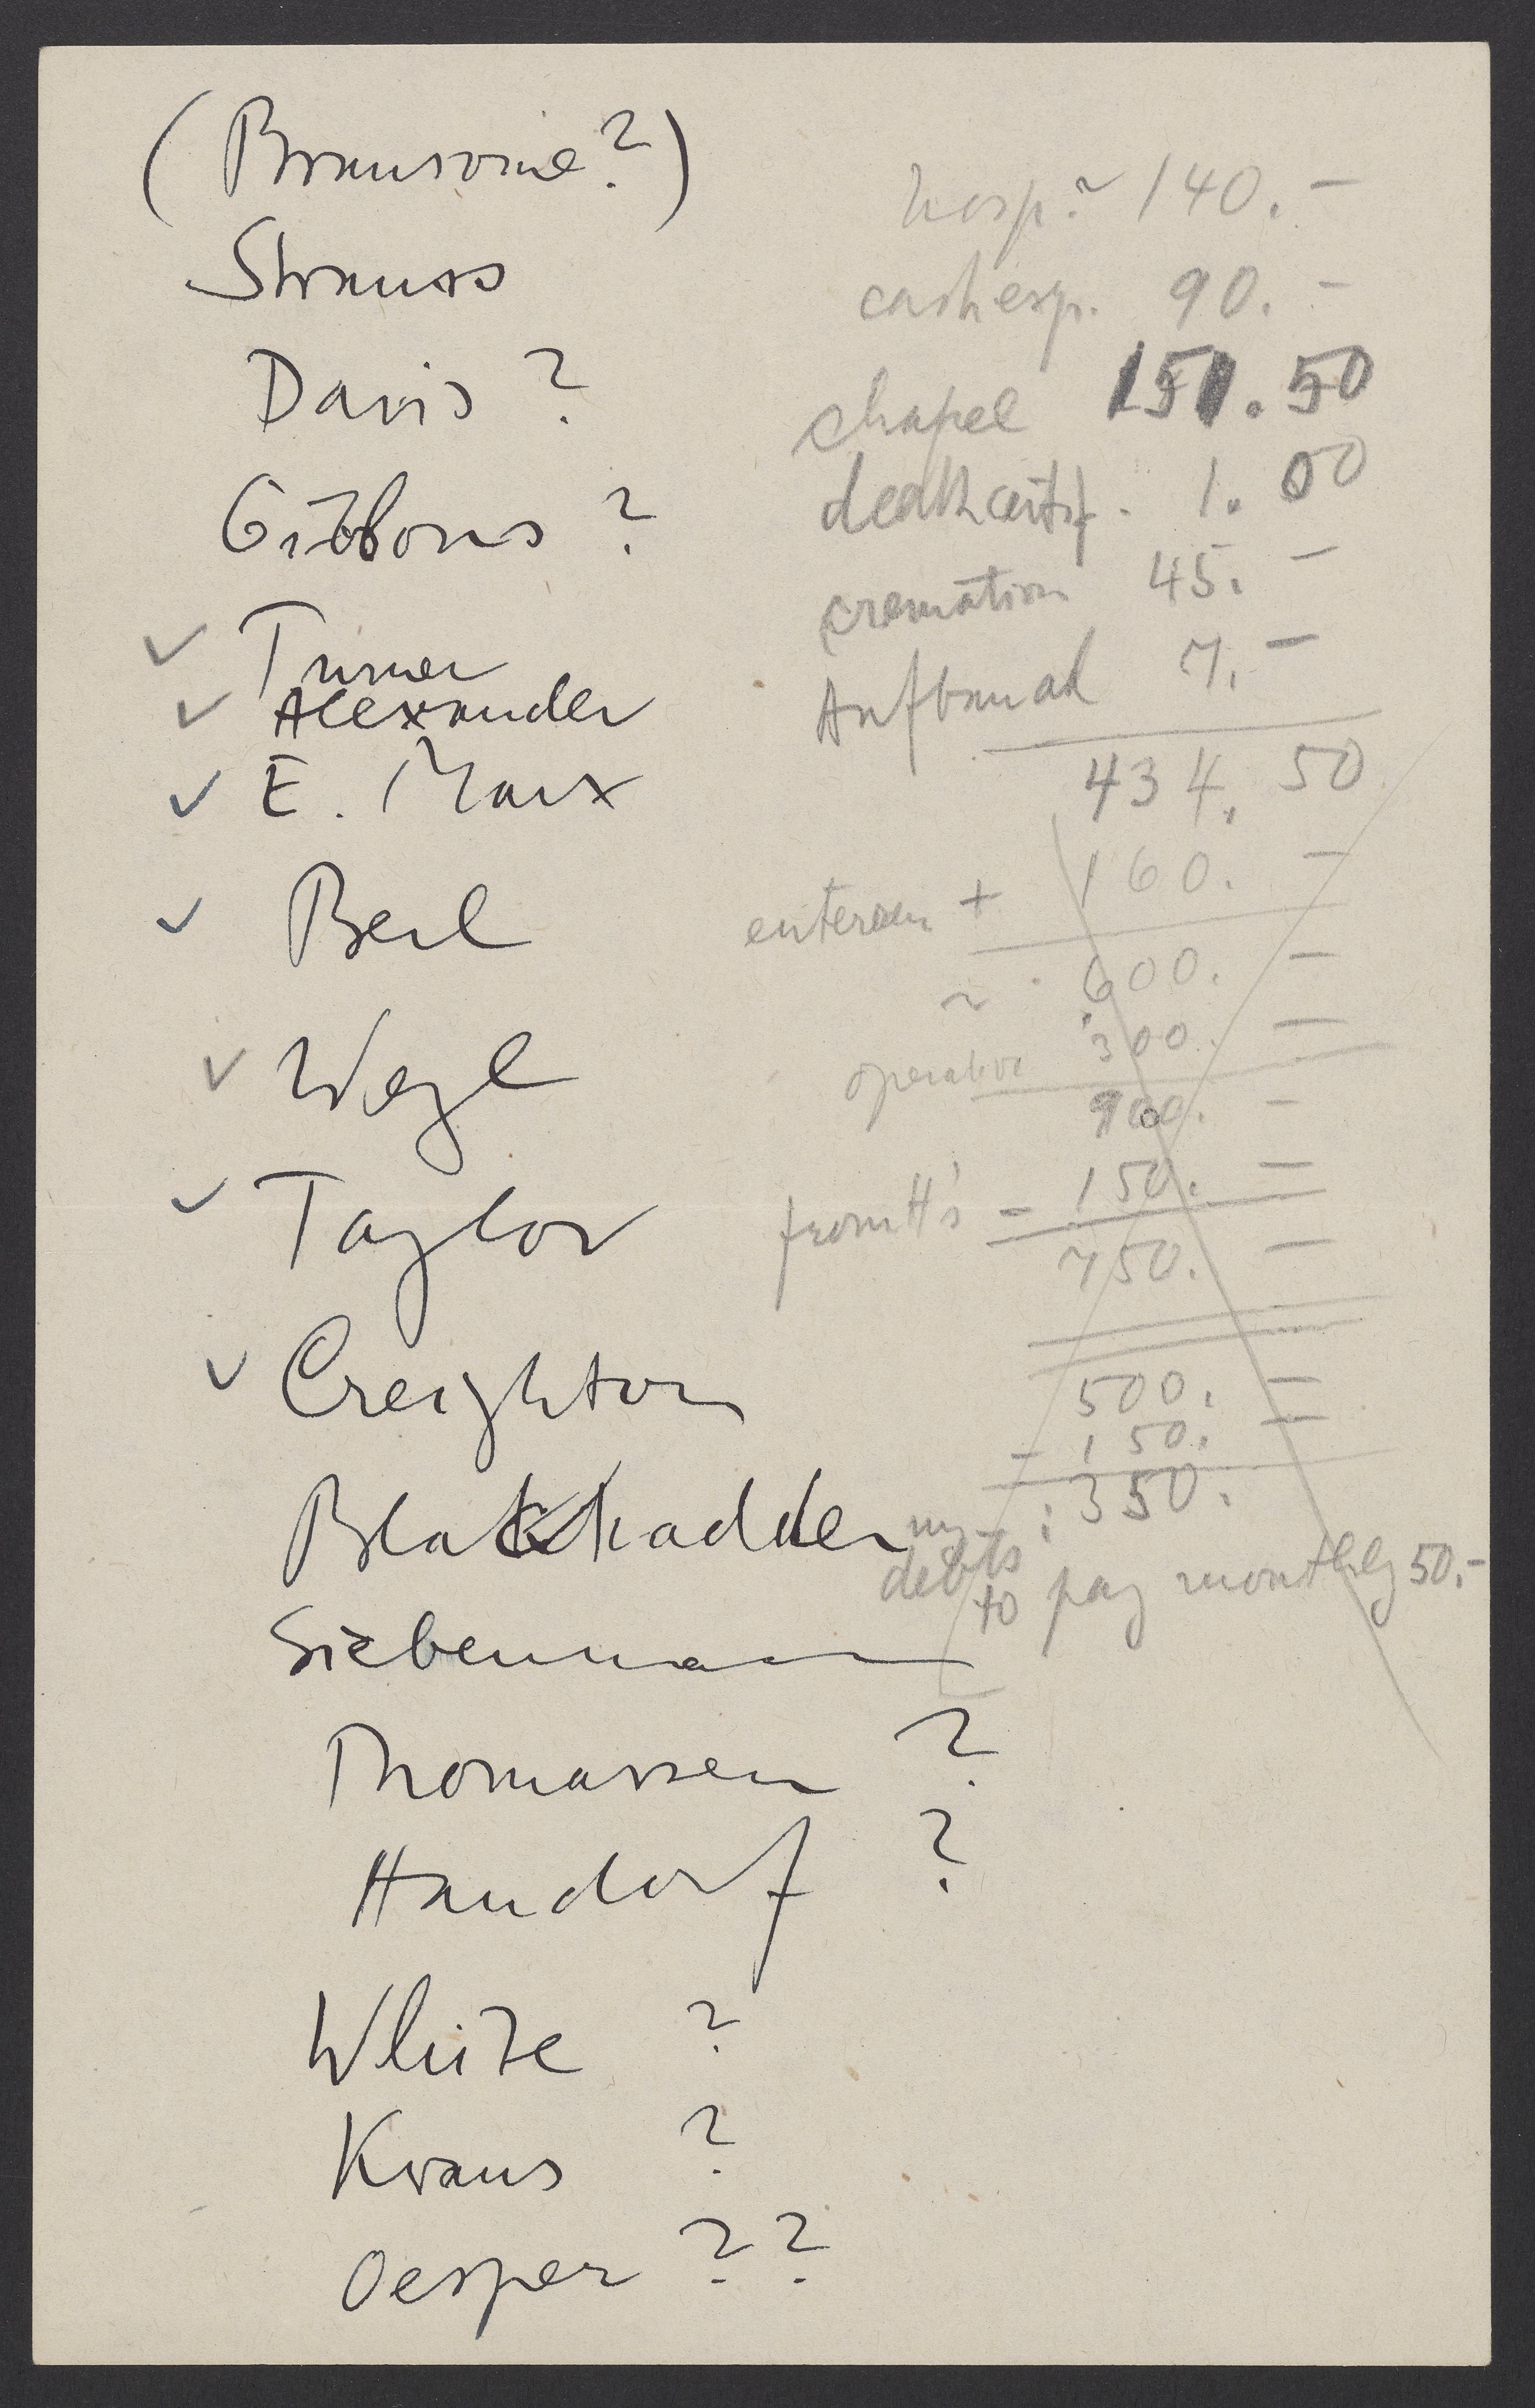 (Bransome?)
Strauss
Davis ?
Gibbons ?
✓ Turner
✓ Alexander
✓ E. Marx
✓ Berl
✓ Weyl
✓ Taylor
✓ Creighton
Blackkadder
Siebenmann
Thomassen ?
Handorf ?
White ?
Kraus ?
Oesper ??
hosp. ~ 140.–
cash exp. 90.–
chapel 151.50
death certif. 1.00
cremation 45.–
Aufbau ad 7.–
434.50
+ 160.–
~ 600.–
operative 300.–
900.–
from H's – 150.–
750.–
500.–
– 150.–
: 350.
my debts
to pay monthly 50.–